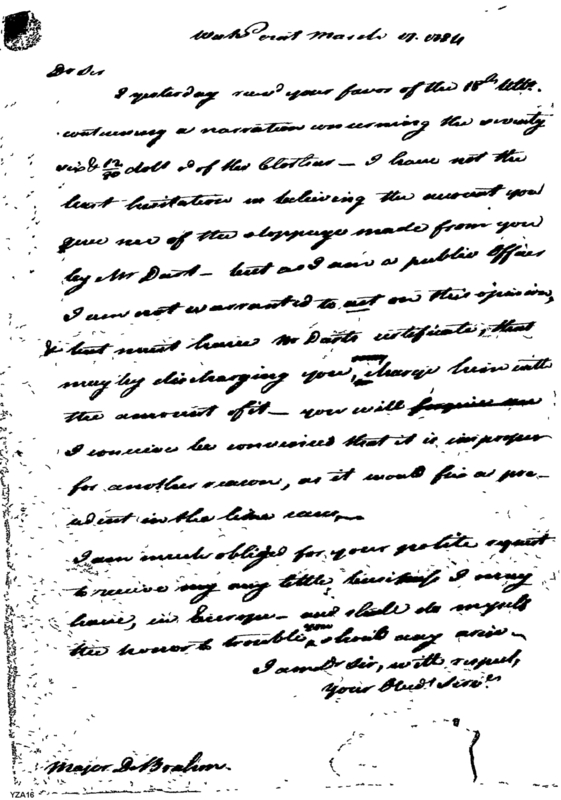 West Point March 17. 1784
Dr Sir
I yesterday recd your favor of the 18th Ulto.
containing a narration concerning the seventy
six & 12/90 dolls of the Clothier — I have not the
least hesitation in believing the account you
give me of the stoppage made from you
by Mr Dart — but as I am a public Officer
I am not warranted to act on this opinion,
& but must have Mr Darts certificate, that
may by discharging you, charge him with
the amount of it — you will
I conceive be convinced that it is improper
for another reason, as it would fix a pre-
cedent in the like cases
I am much obliged for your polite request
to receive my any little business I may
have, in Europe — and shall do myself
the honor to trouble you, should any arise —
I am Dr Sir, with respect,
your Obedt Servt
Major De Brahm.
YZA16